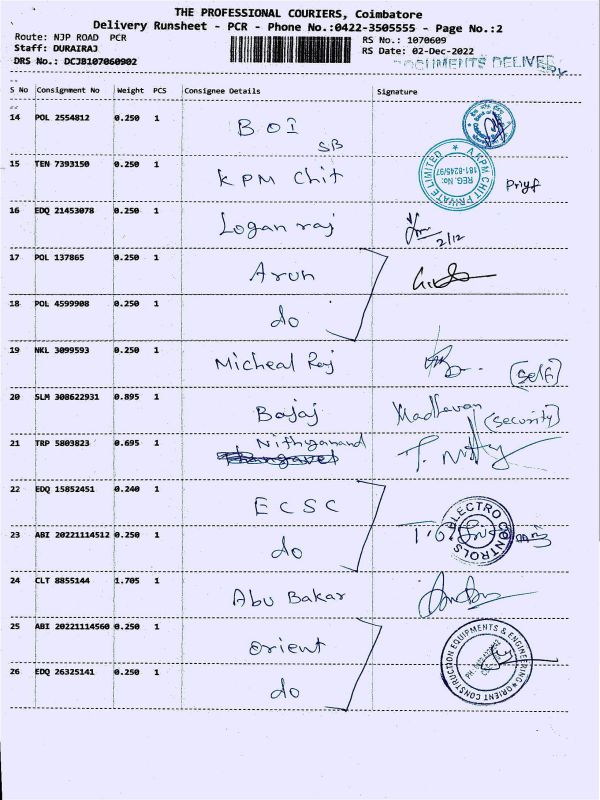 THE PROFESSIONAL COURIERS, Coimbatore
Delivery Runsheet - PCR - Phone No.:0422-3505555 - Page No.:2
Route: NJP ROAD PCR
RS No.: 1070609
Staff: DURAIRAJ
RS Date: 02-Dec-2022
DRS No.: DCJB107060902
DOCUMENTS DELIVERY
S No Consignment No Weight PCS Consignee Details Signature
14 POL 2554812 0.250 1 BOI
SB
15 TEN 7393150 0.250 1 KPM Chit
A KPM CHIT PRIVATE LIMITED ★ REG. No: 181-8245/97
16 EDQ 21453078 0.250 1 Logan raj
2/12
17 POL 137865 0.250 1 Arun
18 POL 4599908 0.250 1 do
19 NKL 3099593 0.250 1 Micheal Raj (Self)
20 SLM 308622931 0.895 1 Bajaj Madhavan (Security)
21 TRP 5803823 0.695 1 Nithyanand
22 EDQ 15852451 0.240 1 ECSC
ELECTRO CONTROLS
23 ABI 20221114512 0.250 1 do
24 CLT 8855144 1.705 1 Abu Bakar
25 ABI 20221114560 0.250 1 Orient
ORIENT CONSTRUCTION EQUIPMENTS & ENGINEERING
26 EDQ 26325141 0.250 1 do